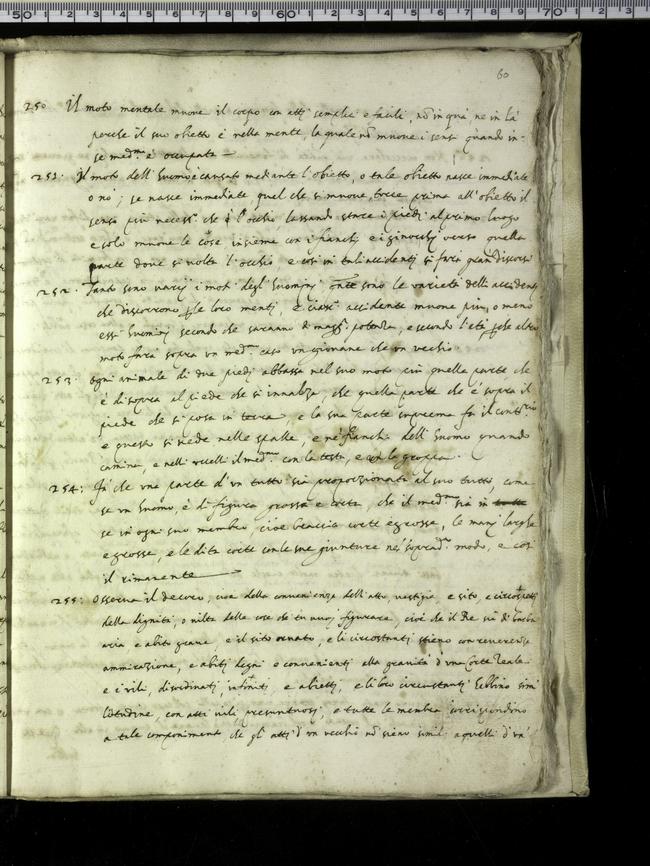 60
250 Il moto mentale muoue il corpo con atti semplici e facili, nō in quà ne in là
perche il suo obietto è nella mente, la quale nō muoue i sensi quando in
se med.ma è occupata
251. Il moto dell'huomo è causato mediante l'obietto, o tale obietto nasce immediate
o no; se nasce immediate quel che si muoue torce prima all'obietto il
senso più necess.o che è l'occhio lassando stare i piedi al primo luogo
e solo muoue le cosc, insieme con i fianchi e i ginocchi verso quella
parte doue si volta l'occhio e così in tali accidenti si farà gran discorso
252. Tanto sono varij i moti degl'huomini quante sono le varietà delli accidenti
che discorrono per le loro menti, e ciasc.o accidente muoue più, o meno
essi huomini secondo che saranno di magg.r potenza, e secondo l'età, perche altro
moto farà sopra un med.mo caso un giouane che un vecchio
253 Ogni animale di due piedi abbassa nel suo moto più quella parte che
è disopra al piede che si innalza, che quella parte che è sopra il
piede che si posa in terra e la sua parte suprema fa il contrario
e questo si vede nelle spalle, e ne fianchi dell'huomo quando
camina, e nelli uccelli il med.mo con la testa, e con la groppa.
254. Fà che una parte d'un tutto sia proporzionata al suo tutto, come
se un huomo, è di figura grossa e corta, che il med.mo sia in
se in ogni suo membro, cioè braccia corte e grosse, le mani larghe
e grosse, e le dita corte con le sue giunture nel soprad.o modo, e così
il rimanente
255. Osserua il decoro, cioè della conuenienza dell'atto, uestigie, e sito, e circospetti
della dignità, o uiltà delle cose che tu uuoi figurare, cioè che il Re sia di barba
aria e abito graue, e il sito ornato, e li circostanti stieno con reuerenza
ammirazione, e abiti degni e conuenienti alla grauità d'una Corte Reale
e i vili, disordinati, infiniti, e abietti, e li loro circustanti hebbino simi
litudine, con atti uili presuntuosi, e tutte le membra corrispondino
a tale componimento che gl'atti d'un vecchio nō sieno simili a quelli d'un